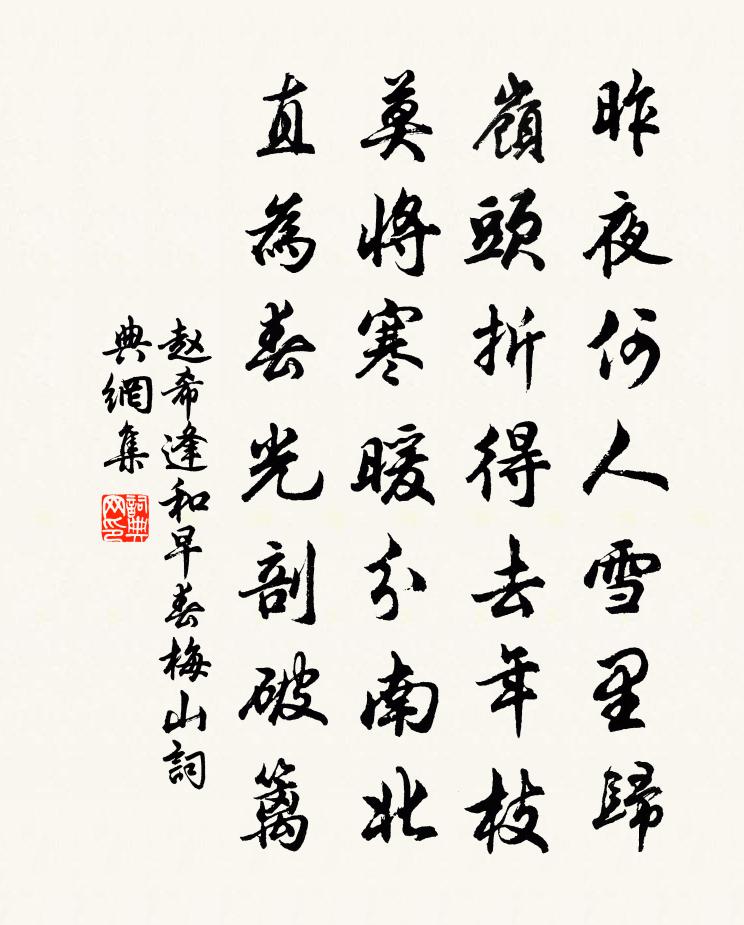 昨夜何人雪里歸
嶺頭折得去年枝
莫將寒暖分南北
直為春光剖破篱
赵希逢和早春梅山詞
典網集
詞典网印